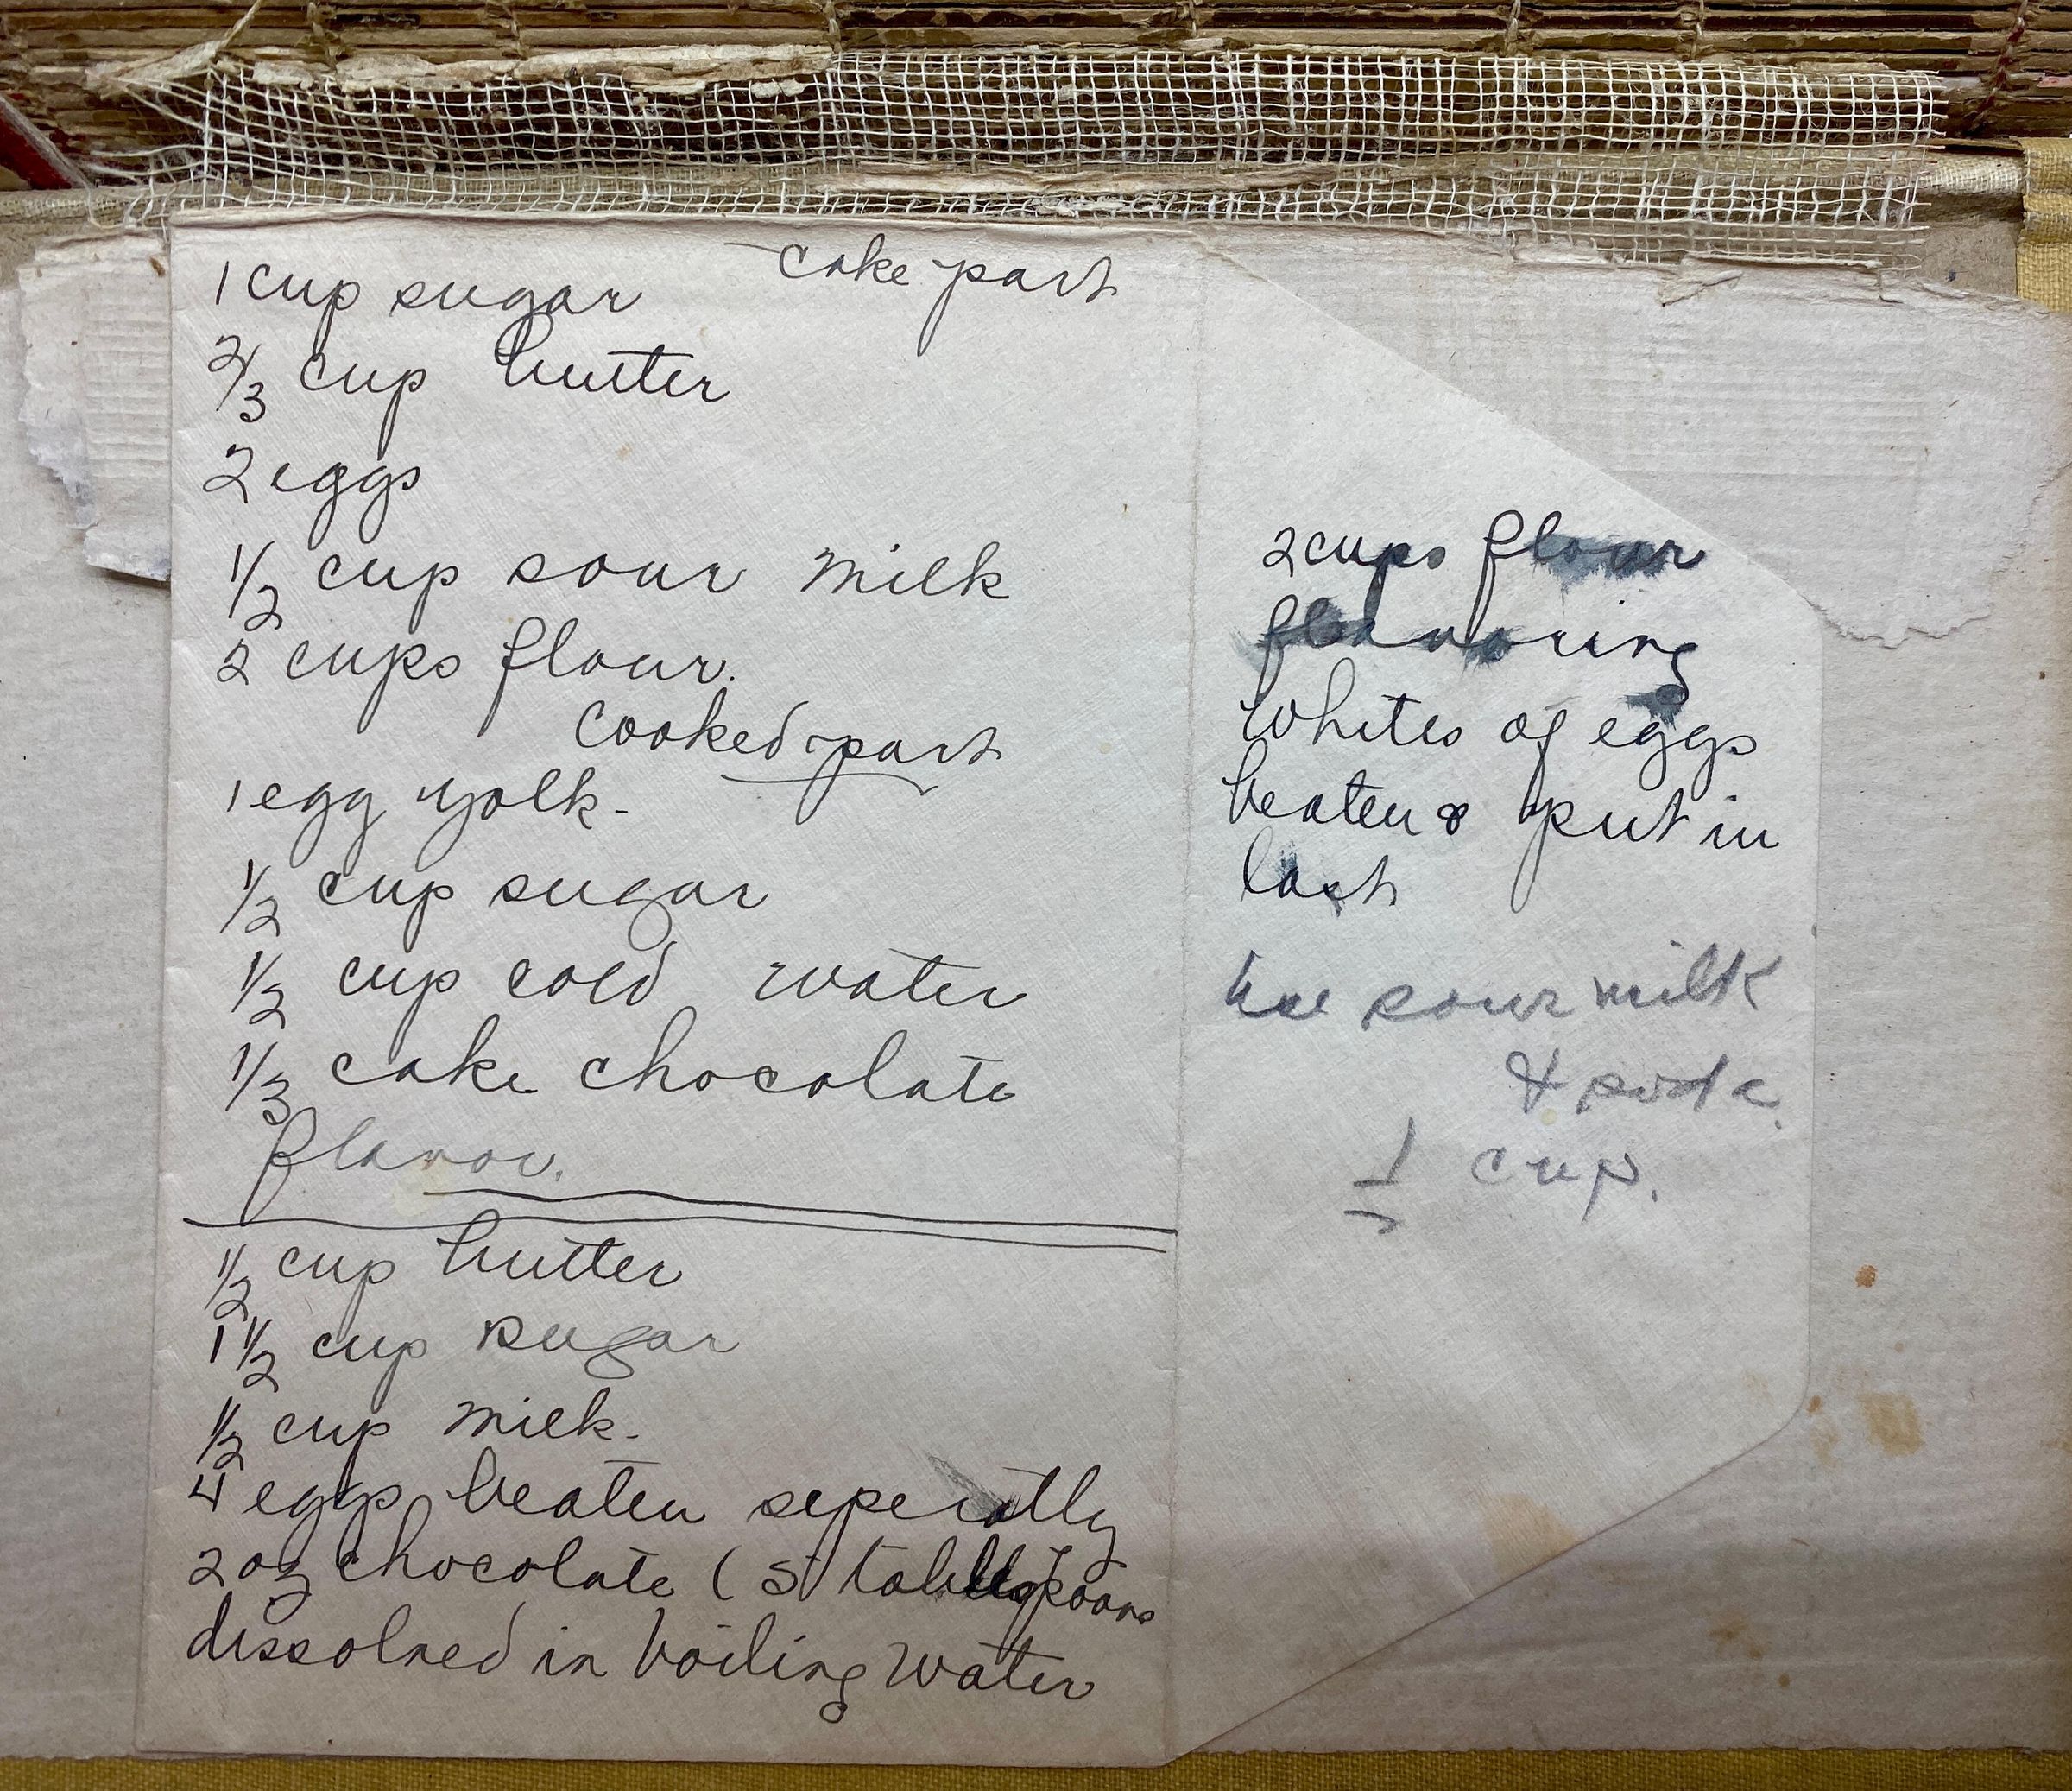 cake part
1 cup sugar
2/3 cup butter
2 eggs
1/2 cup sour milk
2 cups flour.
cooked part
1 egg yolk-
1/2 cup sugar
1/2 cup cold water
1/3 cake chocolate
flavor.
1/2 cup butter
1 1/2 cup sugar
1/2 cup milk-
4 eggs beaten seperatly
2 oz chocolate (5 tablespoons
dissolved in boiling water
2 cups flour
flavoring
whites of eggs
beaten & put in
last
use sour milk
& soda.
cup.